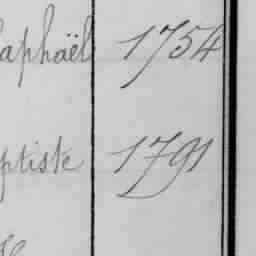 aphaël 1754
ptiste 1791